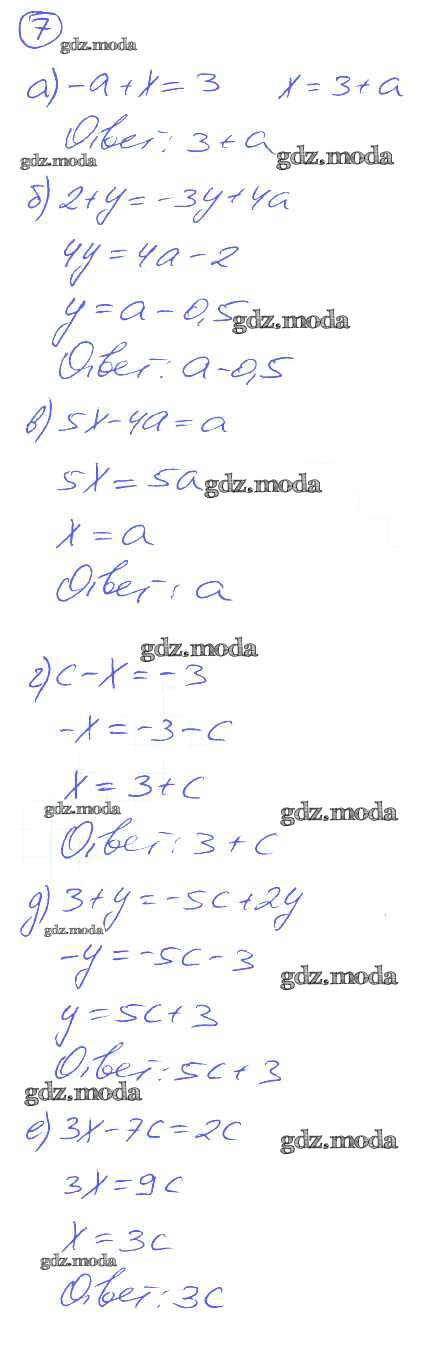 7
gdz.moda
а) -a + x = 3 x = 3 + a
Ответ: 3 + a
gdz.moda gdz.moda
б) 2 + y = -3y + 4a
4y = 4a - 2
y = a - 0,5
gdz.moda
Ответ: a - 0,5
в) 5x - 4a = a
5x = 5a
gdz.moda
x = a
Ответ: a
gdz.moda
г) c - x = -3
-x = -3 - c
x = 3 + c
gdz.moda gdz.moda
Ответ: 3 + c
д) 3 + y = -5c + 2y
gdz.moda
-y = -5c - 3
gdz.moda
y = 5c + 3
Ответ: 5c + 3
gdz.moda
е) 3x - 7c = 2c
gdz.moda
3x = 9c
x = 3c
gdz.moda
Ответ: 3c